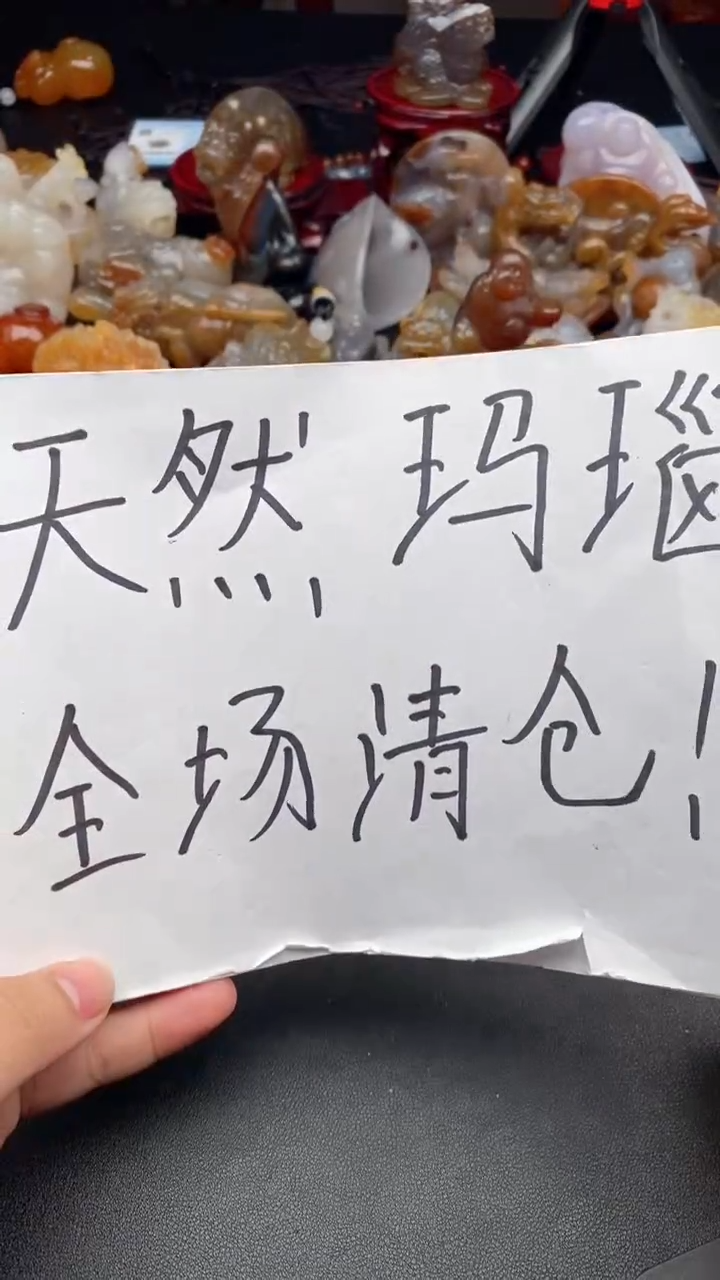 天然玛瑙
全场清仓!